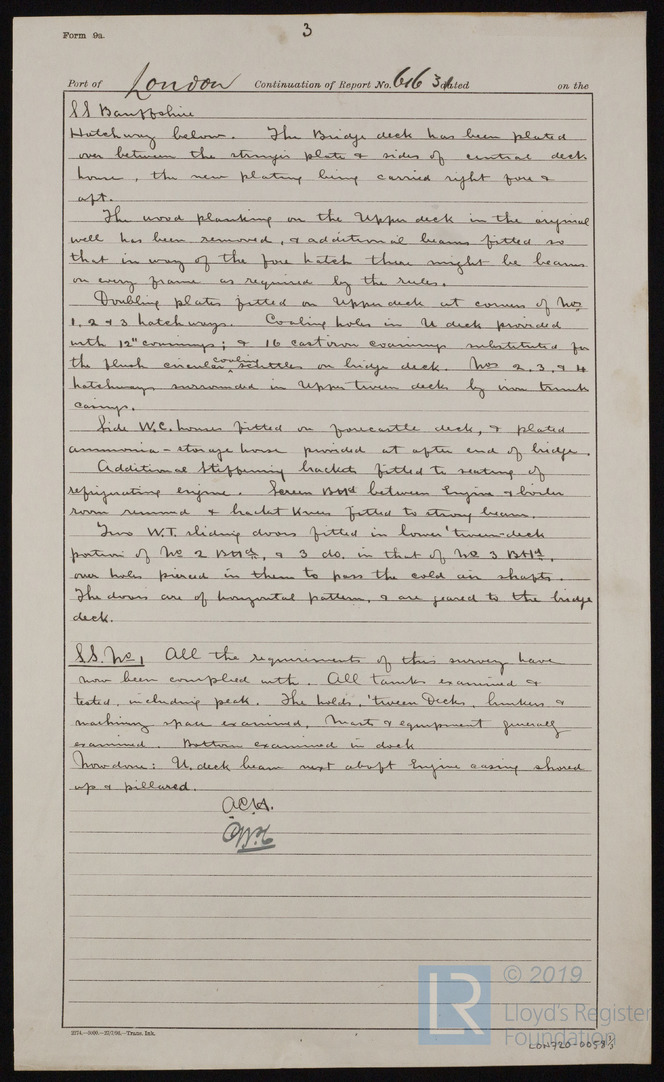 3
Form 9a.
Port of London Continuation of Report No. 61634 dated on the
SS Banffshire
Hatchway below. The Bridge deck has been plated
over between the stringer plate & sides of central deck
house, the new plating being carried right fore &
aft.
The wood planking on the Upper deck in the original
well has been removed, & additional beams fitted so
that in way of the fore hatch there might be beams
on every frame as required by the rules.
Doubling plates fitted on Upper deck at corners of Nos
1, 2 & 3 hatchways. Coaling holes in U deck provided
with 12" coamings; & 16 cast iron coamings substituted for
the flush circular coaling scuttles on bridge deck. Nos 2, 3, & 4
hatchways surrounded in Upper tween decks by iron trunk
casings.
Side W.C. houses fitted on forecastle deck, & plated
ammonia-storage house provided at after end of bridge.
Additional stiffening brackets fitted to seating of
refrigerating engine. Screen BHd between Engine & boiler
room removed & bracket knees fitted to strong beam.
Two W.T. sliding doors fitted in lower 'tween-deck
portion of No 2 BHd, & 3 do. in that of No 3 BHd,
over holes pierced in them to pass the cold air shafts.
The doors are of horizontal pattern, & are geared to the bridge
deck.
S.S. No 1 All the requirements of this survey have
now been complied with. All tanks examined &
tested, including peak. The holds, 'tween Decks, bunkers &
machinery space examined, Masts & equipment generally
examined. Bottom examined in dock
Now done: U. deck beam next abaft Engine casing shored
up & pillared.
A.C.H.
2074.—3000.—27/7/98.—Trans. Ink.
LR © 2019
Lloyd's Register
Foundation
LON720-0058 1/3